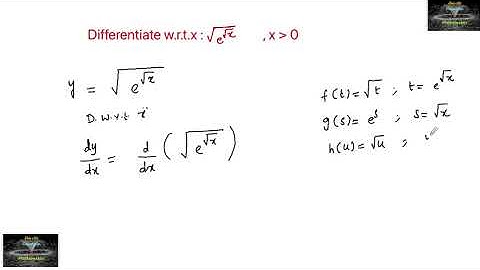 Differentiate w.r.t.x : √e^√x , x > 0
y = √e^√x
D. w. r. t x
dy/dx = d/dx (√e^√x)
f(t) = √t ; t = e^√x
g(s) = e^s ; s = √x
h(u) = √u ;